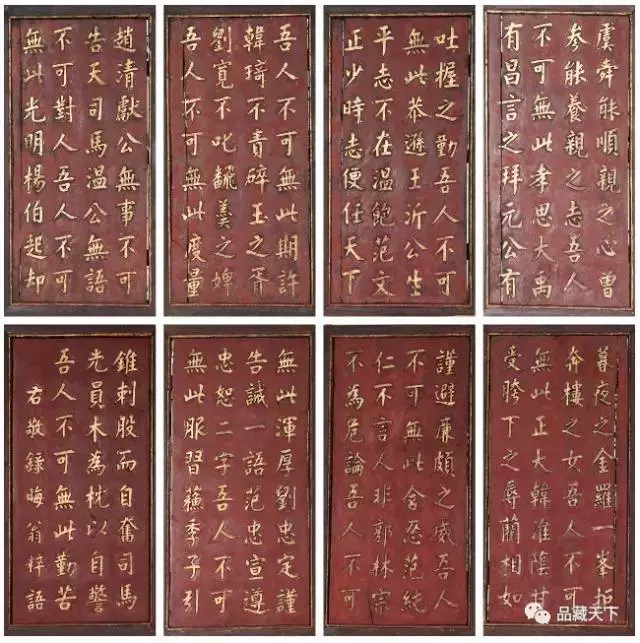 虞舜能順親之心曾
参能養親之志吾人
不可無此孝思大禹
有昌言之拜元公有
吐握之勤吾人不可
無此恭遜王沂公生
平志不在温飽范文
正少時志便任天下
吾人不可無此期許
韓琦不責碎玉之胥
劉寬不叱翻羹之婢
吾人不可無此度量
趙清獻公無事不可
告天司馬温公無語
不可對人吾人不可
無此光明楊伯起却
暮夜之金羅一峯拒
奔樓之女吾人不可
無此正大韓淮陰甘
受胯下之辱藺相如
謹避廉頗之威吾人
不可無此含忍范純
仁不言人非郭林宗
不為危論吾人不可
無此渾厚劉忠定謹
告誡一語范忠宣遵
忠恕二字吾人不可
無此服習蘇季子引
錐刺股而自奮司馬
光員木為枕以自警
吾人不可無此勤苦
右敬録晦翁粹語
品藏天下